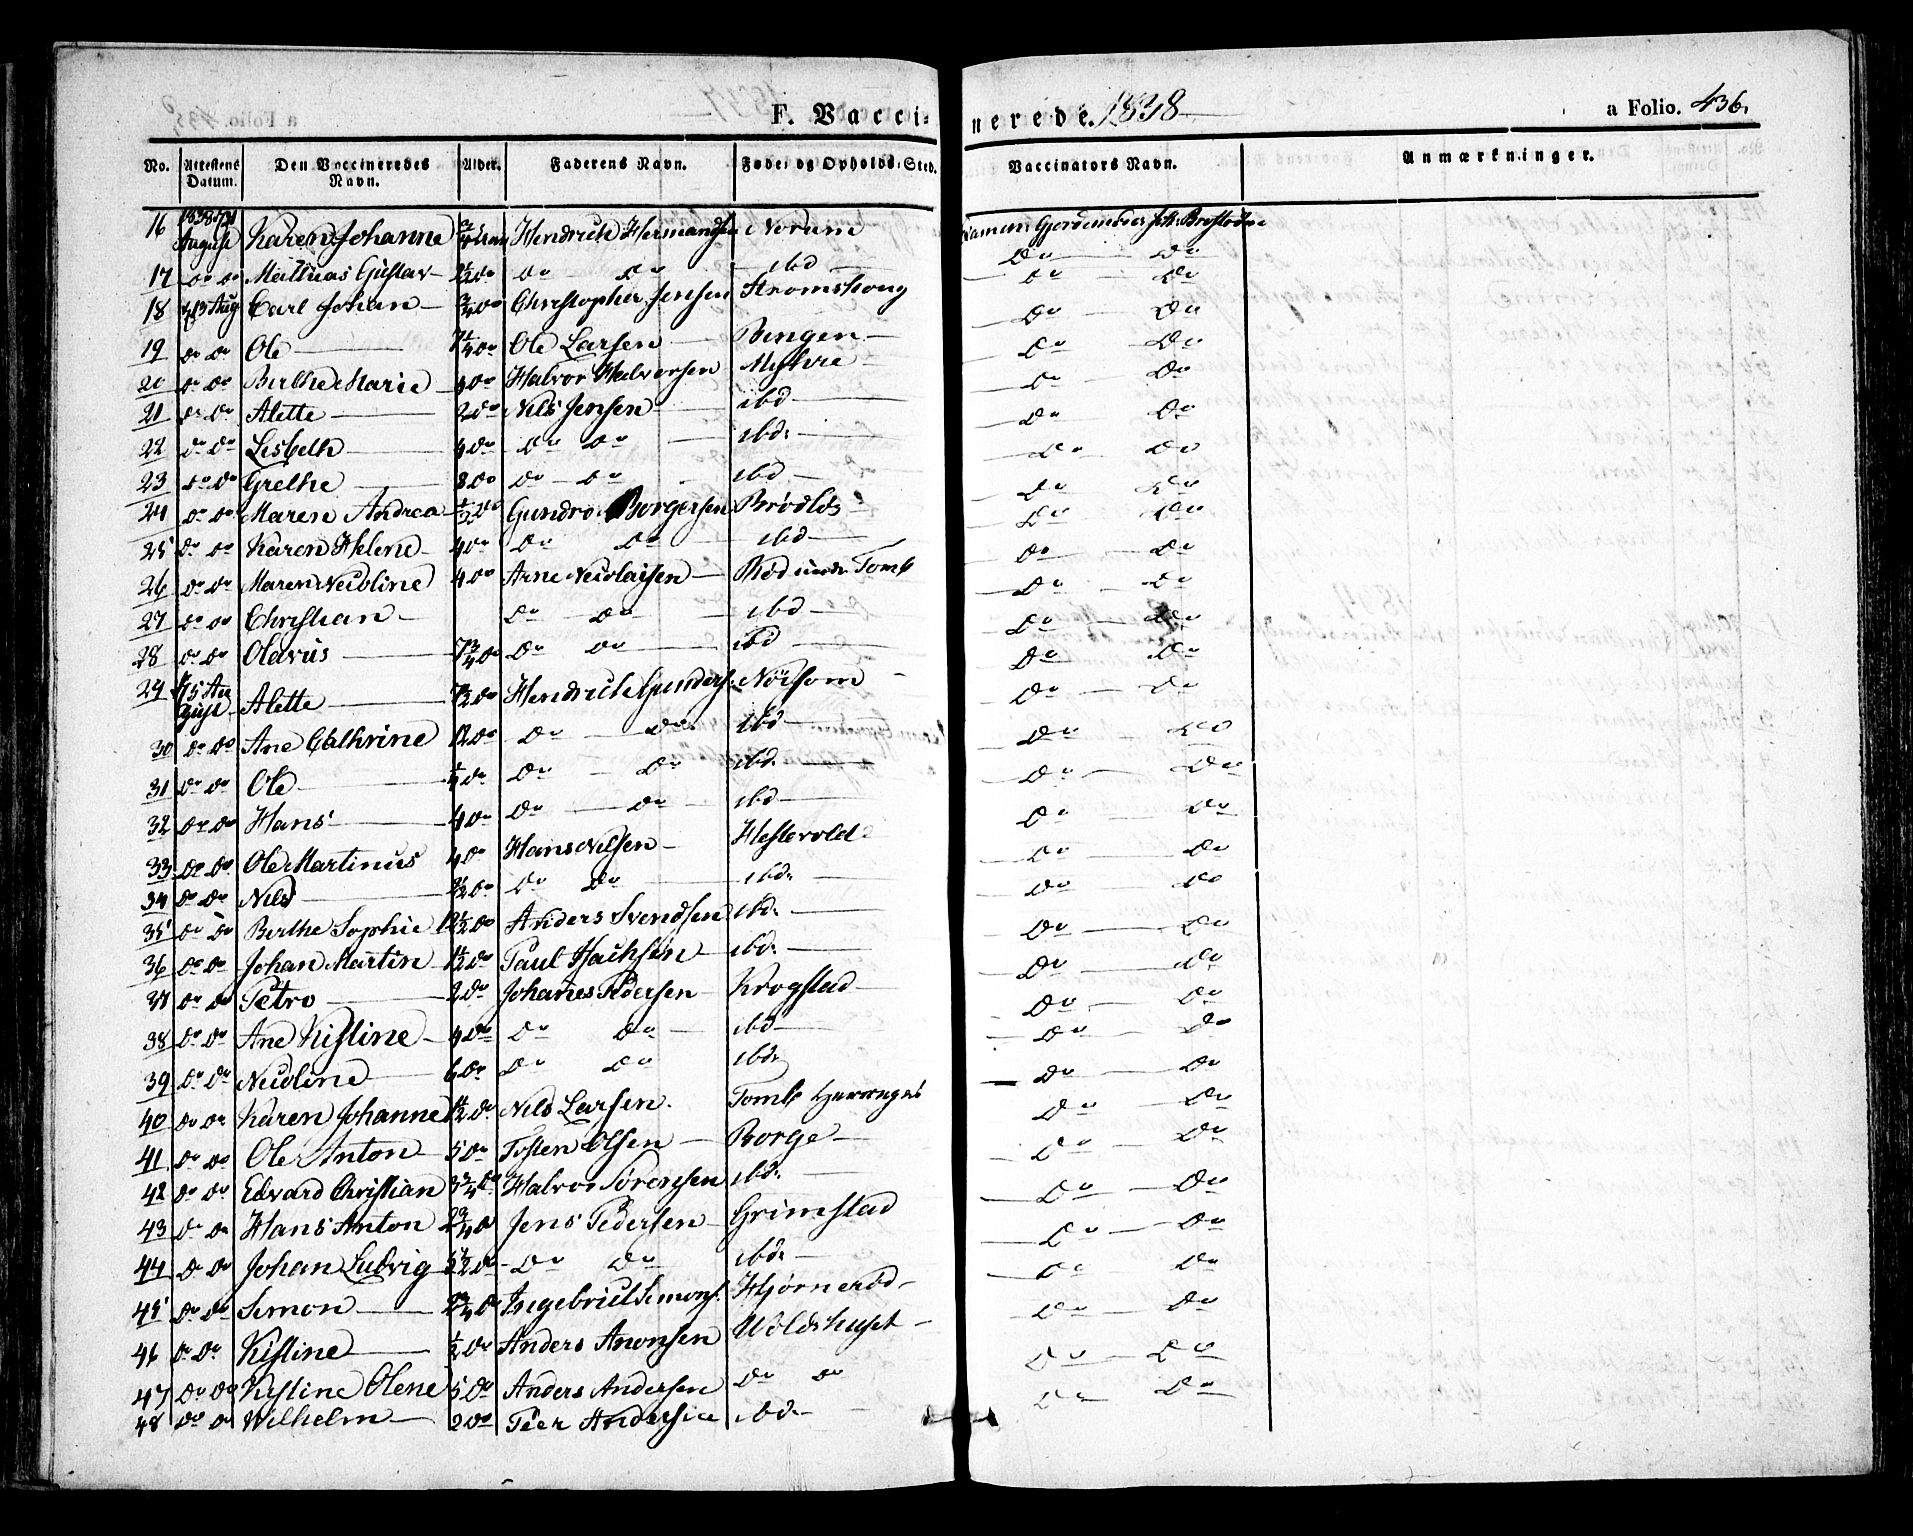 F. Vaccinerede. 1838
a Folio. 436.
No. Attestens Datum. Den Vaccineredes Navn. Alder. Faderens Navn. Føde- og Opholds-Sted. Vaccinators Navn. Anmærkninger.
16 1838 August Karen Johanne Hendrich Hermandsen Norum
17 Do Do Mathias Gustav 2½ Do Do Do ibd Do Do
18 13 Aug Carl Johan ¾ Do Christopher Jensen Do Do
19 Do Do Ole 7¼ Do Ole Larsen Bengen Do Do
20 Do Do Berthe Marie 4 Do Halvor Halvorsen Do Do
21 Do Do Alette 2 Do Nils Jensen ibd Do Do
22 Do Do Lisbeth 4 Do Do Do ibd. Do Do
23 Do Do Grethe 8 Do Do Do ibd Do Do
24 Do Do Maren Andrea ½ Do Gundro Borgersen Do Do
25 Do Do Karen Helene 4 Do Do Do ibd Do Do
26 Do Do Maren Nicoline 4 Do Arne Nicolaisen Rød under Tomb Do Do
27 Do Do Christian Do Do ibd Do Do
28 Do Do Olavus 7¾ Do Do Do ibd Do Do
29 15 August Alette 7½ Do Hendrich Gunders. Noisom Do Do
30 Do Do Ane Cathrine 12 Do Do Do ibd Do Do
31 Do Do Ole Do Do Do ibd. Do Do
32 Do Do Hans 4 Do Do Do ibd Do Do
33 Do Do Ole Martinus 4 Do Hans Nilsen Heslevold Do Do
34 Do Do Nils 2½ Do Do Do ibd. Do Do
35 Do Do Berthe Sophie 12½ Do Anders Svendsen ibd. Do Do
36 Do Do Johan Martin 1½ Do Paul ibd. Do Do
37 Do Do Petro 2 Do Johanes Pedersen Krogstad Do Do
38 Do Do Ane Kistine 4 Do Do Do ibd Do Do
39 Do Do Nicoline 6 Do Do Do ibd. Do Do
40 Do Do Karen Johanne 1½ Do Nils Larsen. Tomb Do Do
41 Do Do Ole Anton 5 Do Tosten Olsen Borge Do Do
42 Do Do Edvard Christian 3¾ Do Halvor Sørensen ibd. Do Do
43 Do Do Hans Anton 2¾ Do Jens Pedersen Grimstad Do Do
44 Do Do Johan Ludvig 5½ Do Do Do ibd. Do Do
45 Do Do Simon 2¾ Do Ingebrict Simons. Hjørnerød Do Do
46 Do Do Kistine ½ Do Anders Anonsen Woldshuset Do Do
47 Do Do Kistine Olene 5 Do Anders Andersen Do Do Do Do
48 Do Do Wilhelm 2 Do Peer Andersen ibd.